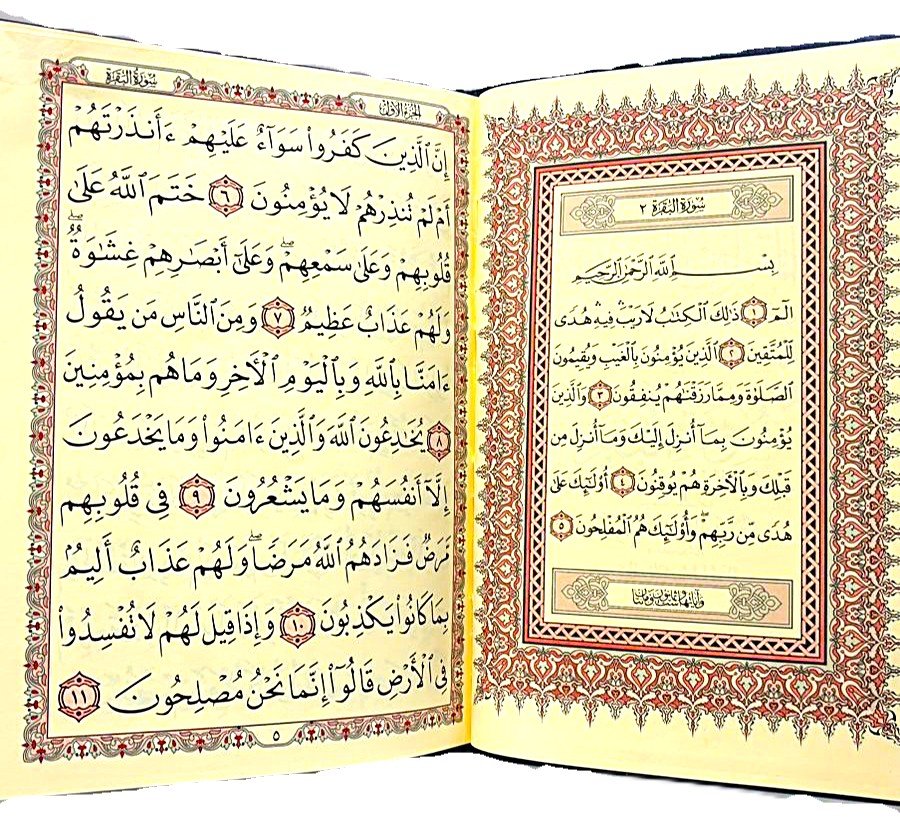 سُورَةُ البَقَرَةِ ٢
بِسْمِ ٱللَّهِ ٱلرَّحْمَٰنِ ٱلرَّحِيمِ
الٓمٓ ١ ذَٰلِكَ ٱلْكِتَٰبُ لَا رَيْبَ ۛ فِيهِ ۛ هُدًى
لِّلْمُتَّقِينَ ٢ ٱلَّذِينَ يُؤْمِنُونَ بِٱلْغَيْبِ وَيُقِيمُونَ
ٱلصَّلَوٰةَ وَمِمَّا رَزَقْنَٰهُمْ يُنفِقُونَ ٣ وَٱلَّذِينَ
يُؤْمِنُونَ بِمَآ أُنزِلَ إِلَيْكَ وَمَآ أُنزِلَ مِن
قَبْلِكَ وَبِٱلْءَاخِرَةِ هُمْ يُوقِنُونَ ٤ أُو۟لَٰٓئِكَ عَلَىٰ
هُدًى مِّن رَّبِّهِمْ ۖ وَأُو۟لَٰٓئِكَ هُمُ ٱلْمُفْلِحُونَ ٥
وَآيَاتُهَا سِتٌّ وَثَمَانُونَ وَمِئَتَانِ
الجُزْءُ الأَوَّلُ
سُورَةُ البَقَرَةِ
إِنَّ ٱلَّذِينَ كَفَرُوا۟ سَوَآءٌ عَلَيْهِمْ ءَأَنذَرْتَهُمْ
أَمْ لَمْ تُنذِرْهُمْ لَا يُؤْمِنُونَ ٦ خَتَمَ ٱللَّهُ عَلَىٰ
قُلُوبِهِمْ وَعَلَىٰ سَمْعِهِمْ ۖ وَعَلَىٰٓ أَبْصَٰرِهِمْ غِشَٰوَةٌ ۖ
وَلَهُمْ عَذَابٌ عَظِيمٌ ٧ وَمِنَ ٱلنَّاسِ مَن يَقُولُ
ءَامَنَّا بِٱللَّهِ وَبِٱلْيَوْمِ ٱلْءَاخِرِ وَمَا هُم بِمُؤْمِنِينَ
٨ يُخَٰدِعُونَ ٱللَّهَ وَٱلَّذِينَ ءَامَنُوا۟ وَمَا يَخْدَعُونَ
إِلَّآ أَنفُسَهُمْ وَمَا يَشْعُرُونَ ٩ فِى قُلُوبِهِم
مَّرَضٌ فَزَادَهُمُ ٱللَّهُ مَرَضًا ۖ وَلَهُمْ عَذَابٌ أَلِيمٌۢ
بِمَا كَانُوا۟ يَكْذِبُونَ ١٠ وَإِذَا قِيلَ لَهُمْ لَا تُفْسِدُوا۟
فِى ٱلْأَرْضِ قَالُوٓا۟ إِنَّمَا نَحْنُ مُصْلِحُونَ ١١
٥